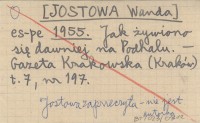 [JOSTOWA Wanda]
es-pe 1955. Jak żywiono
się dawniej na Podhalu. -
Gazeta Krakowska (Kraków)
t. 7, nr 197.
Jostowa zaprzeczyła - nie jest